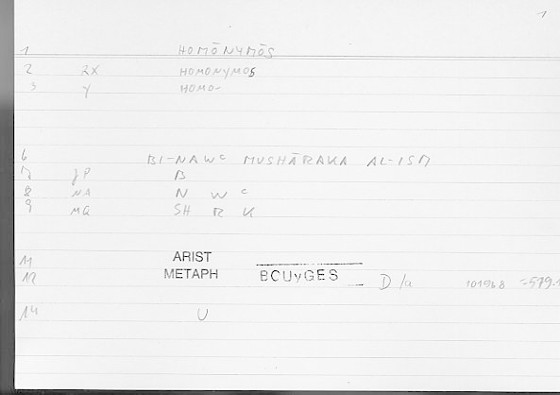 1
1 HOMŌNYMŌS
2 2X HOMONYMOS
3 Y HOMO-
6 BI-NAWC MUSHĀRAKA AL-ISM
7 JP B
8 NA N W C
9 MQ SH R K
11 ARIST
12 METAPH BOUyGES D/a 101968
14 U